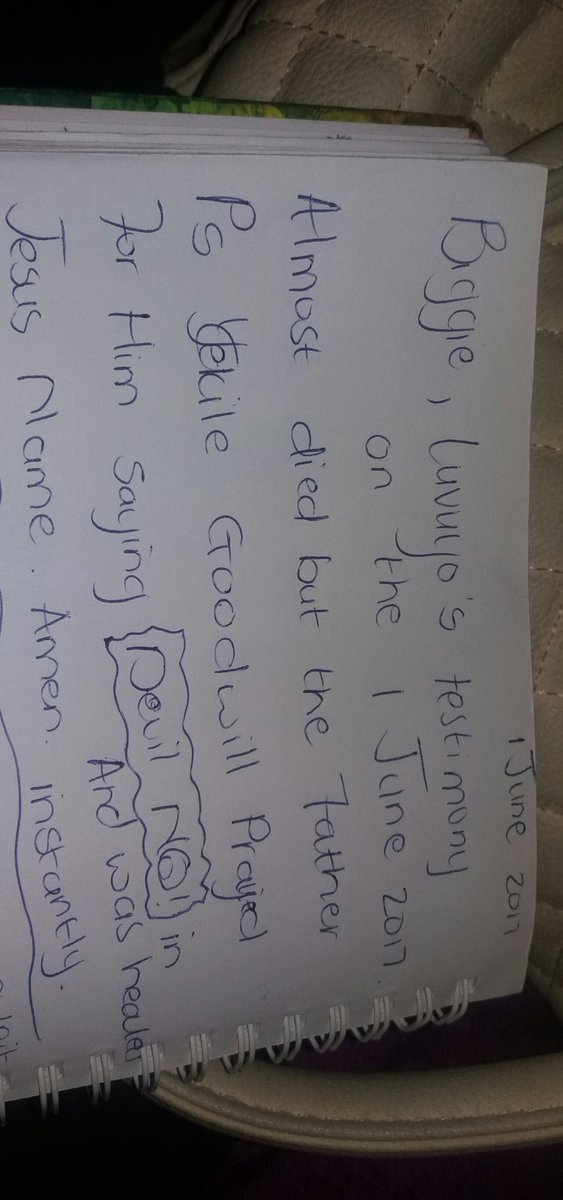 1 June 2017
Biggie, Luvuyo's testimony
on the 1 June 2017.
Almost died but the Father
Ps Yekile Goodwill Prayed
For Him saying Devil NO! in
And was healed
Jesus Name. Amen. instantly.